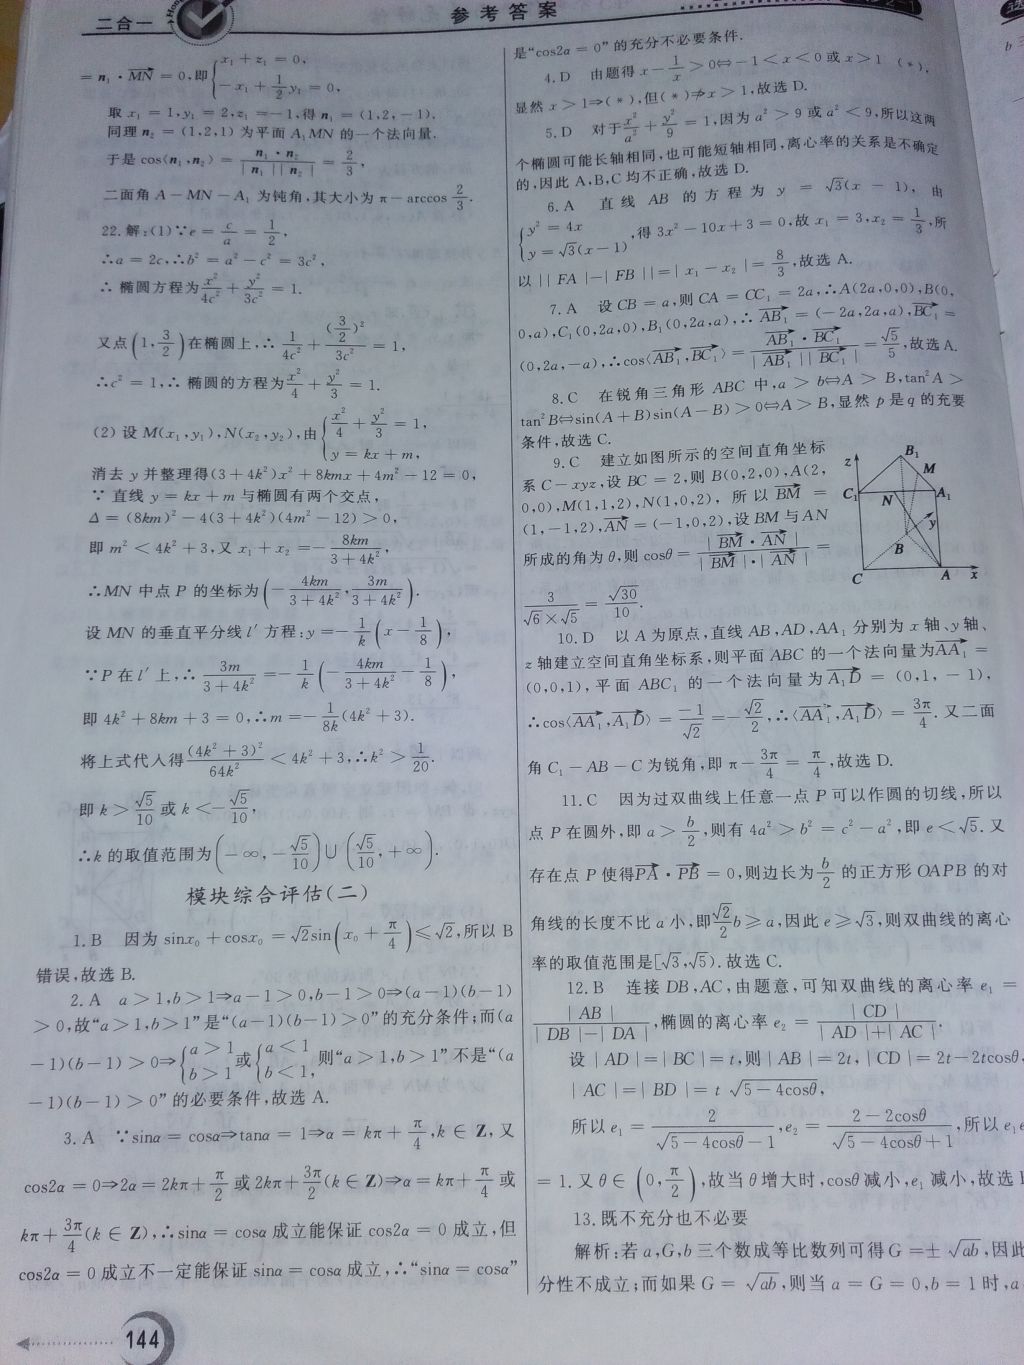 二合一
参考答案
= n₁ · MN = 0,即{x₁ + z₁ = 0, − x₁ + 1/2 y₁ = 0,
取 x₁ = 1,y₁ = 2,z₁ = −1,得 n₁ = (1,2,−1),
同理 n₂ = (1,2,1) 为平面 A₁MN 的一个法向量.
于是 cos⟨n₁,n₂⟩ = n₁ · n₂ / | n₁ || n₂ | = 2/3,
二面角 A − MN − A₁ 为钝角,其大小为 π − arccos 2/3.
22.解:(1)∵e = c/a = 1/2,
∴a = 2c,∴b² = a² − c² = 3c²,
∴ 椭圆方程为 x²/4c² + y²/3c² = 1.
又点(1,3/2)在椭圆上,∴ 1/4c² + (3/2)²/3c² = 1,
∴c² = 1,∴ 椭圆的方程为 x²/4 + y²/3 = 1.
(2) 设 M(x₁,y₁),N(x₂,y₂),由{x²/4 + y²/3 = 1, y = kx + m,
消去 y 并整理得(3 + 4k²)x² + 8kmx + 4m² − 12 = 0,
∵ 直线 y = kx + m 与椭圆有两个交点,
Δ = (8km)² − 4(3 + 4k²)(4m² − 12) > 0,
即 m² < 4k² + 3,又 x₁ + x₂ =− 8km/(3 + 4k²),
∴MN 中点 P 的坐标为(− 4km/(3 + 4k²), 3m/(3 + 4k²)).
设 MN 的垂直平分线 l′ 方程:y =− 1/k (x − 1/8),
∵P 在 l′ 上,∴ 3m/(3 + 4k²) =− 1/k (− 4km/(3 + 4k²) − 1/8),
即 4k² + 8km + 3 = 0,∴m =− 1/8k (4k² + 3).
将上式代入得 (4k² + 3)²/64k² < 4k² + 3,∴k² > 1/20.
即 k > √5/10 或 k <− √5/10,
∴k 的取值范围为(− ∞, − √5/10) ∪ (√5/10, +∞).
模块综合评估(二)
1.B 因为 sinx₀ + cosx₀ = √2sin(x₀ + π/4)≤√2,所以 B
错误,故选 B.
2.A a > 1,b > 1⇒a − 1 > 0,b − 1 > 0⇒(a − 1)(b − 1)
> 0,故“a > 1,b > 1”是“(a − 1)(b − 1) > 0”的充分条件;而(a
− 1)(b − 1) > 0⇒{a > 1 b > 1 或{a < 1 b < 1, 则“a > 1,b > 1”不是“(a
− 1)(b − 1) > 0”的必要条件,故选 A.
3.A ∵sinα = cosα⇒tanα = 1⇒α = kπ + π/4,k ∈ Z,又
cos2α = 0⇒2α = 2kπ + π/2 或 2kπ + 3π/2 (k ∈ Z)⇒α = kπ + π/4 或
kπ + 3π/4 (k ∈ Z),∴sinα = cosα 成立能保证 cos2α = 0 成立,但
cos2α = 0 成立不一定能保证 sinα = cosα 成立,∴“sinα = cosα”
144
是“cos2α = 0”的充分不必要条件.
4.D 由题得 x − 1/x > 0⇔ − 1 < x < 0 或 x > 1 (*),
显然 x > 1⇒( * ),但( * )⇏x > 1,故选 D.
5.D 对于 x²/a² + y²/9 = 1,因为 a² > 9 或 a² < 9,所以这两
个椭圆可能长轴相同,也可能短轴相同,离心率的关系是不确定
的,因此 A,B,C 均不正确,故选 D.
6.A 直线 AB 的方程为 y = √3(x − 1), 由
{y² = 4x y = √3(x − 1),得 3x² − 10x + 3 = 0,故 x₁ = 3,x₂ = 1/3,所
以 || FA |−| FB ||=| x₁ − x₂ |= 8/3,故选 A.
7.A 设 CB = a,则 CA = CC₁ = 2a,∴A(2a,0,0),B(0,
0,a),C₁(0,2a,0),B₁(0,2a,a),∴ AB₁ = (− 2a,2a,a),BC₁ =
(0,2a,−a),∴cos⟨AB₁,BC₁⟩ = AB₁ · BC₁ / | AB₁ || BC₁ | = √5/5,故选 A.
8.C 在锐角三角形 ABC 中,a > b⇔A > B,tan²A >
tan²B⇔sin(A + B)sin(A − B) > 0⇔A > B,显然 p 是 q 的充要
条件,故选 C.
9.C 建立如图所示的空间直角坐标
系 C − xyz,设 BC = 2,则 B(0,2,0),A(2,
0,0),M(1,1,2),N(1,0,2), 所以 BM =
(1,−1,2),AN = (−1,0,2),设 BM 与 AN
所成的角为 θ,则 cosθ = | BM · AN | / | BM | · | AN | =
3/(√6 × √5) = √30/10.
z B₁ M C₁ N A₁ y B C A x
10.D 以 A 为原点,直线 AB,AD,AA₁ 分别为 x 轴、y 轴、
z 轴建立空间直角坐标系,则平面 ABC 的一个法向量为AA₁ =
(0,0,1), 平面 ABC₁ 的一个法向量为 A₁D = (0,1, − 1),
∴cos⟨AA₁,A₁D⟩ = −1/√2 =− √2/2,∴⟨AA₁,A₁D⟩ = 3π/4. 又二面
角 C₁ − AB − C 为锐角,即 π − 3π/4 = π/4,故选 D.
11.C 因为过双曲线上任意一点 P 可以作圆的切线,所以
点 P 在圆外,即 a > b/2,则有 4a² > b² = c² − a²,即 e < √5. 又
存在点 P 使得PA · PB = 0,则边长为 b/2 的正方形 OAPB 的对
角线的长度不比 a 小,即 √2/2 b ≥ a,因此 e ≥ √3,则双曲线的离心
率的取值范围是[√3,√5). 故选 C.
12.B 连接 DB,AC,由题意,可知双曲线的离心率 e₁ =
| AB | / (| DB |−| DA |),椭圆的离心率 e₂ = | CD | / (| AD |+| AC |).
设 | AD |=| BC |= t,则 | AB |= 2t, | CD |= 2t − 2tcosθ,
| AC |=| BD |= t √5 − 4cosθ,
所以 e₁ = 2/(√5 − 4cosθ − 1),e₂ = (2 − 2cosθ)/(√5 − 4cosθ + 1),所以 e₁
= 1. 又 θ ∈ (0, π/2),故当 θ 增大时,cosθ 减小,e₁ 减小,故选
13.既不充分也不必要
解析:若 a,G,b 三个数成等比数列可得 G =± √ab,因此
分性不成立;而如果 G = √ab,则当 a = G = 0,b = 1 时,a